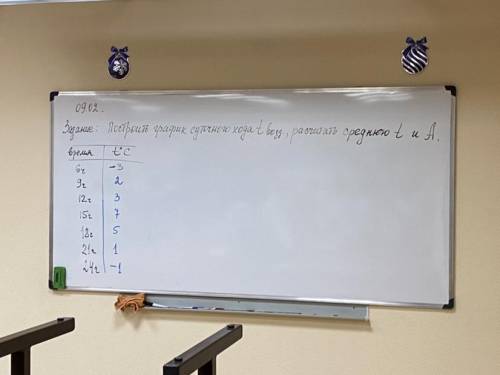 09.02.
Задание: Построить график суточного хода t возд., расчитать среднюю t и А.
время t°C
6ч -3
9ч 2
12ч 3
15ч 7
18ч 5
21ч 1
24ч -1